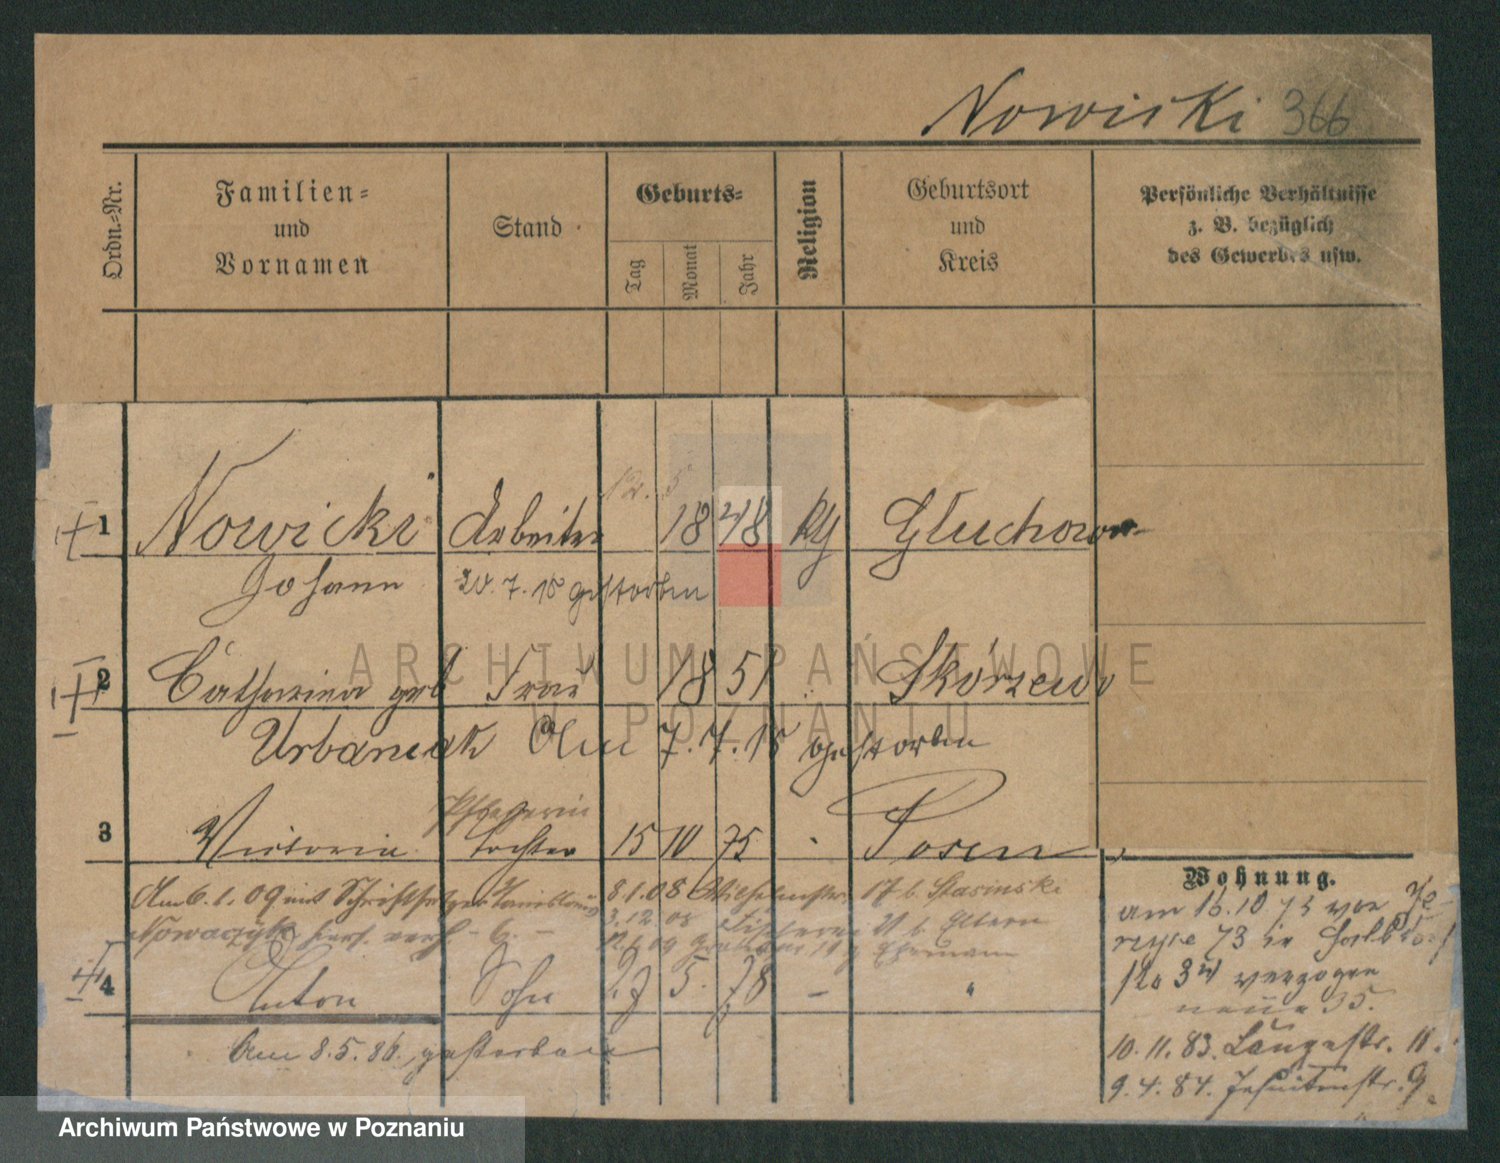 Nowicki 366
Ordn.-Nr.
Familien-
und
Vornamen
Stand
Geburts-
Tag
Monat
Jahr
Religion
Geburtsort
und
Kreis
Persönliche Verhältnisse
z. B. bezüglich
des Gewerbes usw.
12. 5
1 Nowicki Arbeiter 18 48 Gluchowo
Johann 20. 7. 15 gestorben
2 Catharina geb Frau 18 51 Skórzewo
Urbaniak Am 7. 4. 15 gestorben
3 Victoria Tochter 15 10 75 Posen
Am 6. 1. 09 mit Schriftsetzer 8.1.08 Wilhelmstr. 17 b. Stasinski
Nowaczyk 3.12.08 b. Eltern
12.1.09 Ehemann
4 Anton Sohn 5. 78 "
Am 8. 5. 86. gestorben
Wohnung.
am 16. 10 73 von
73 in
verzogen
35.
10. 11. 83. Langestr. 11.
9. 4. 84. Jesuitenstr. 9
ARCHIWUM PAŃSTWOWE
W POZNANIU
Archiwum Państwowe w Poznaniu